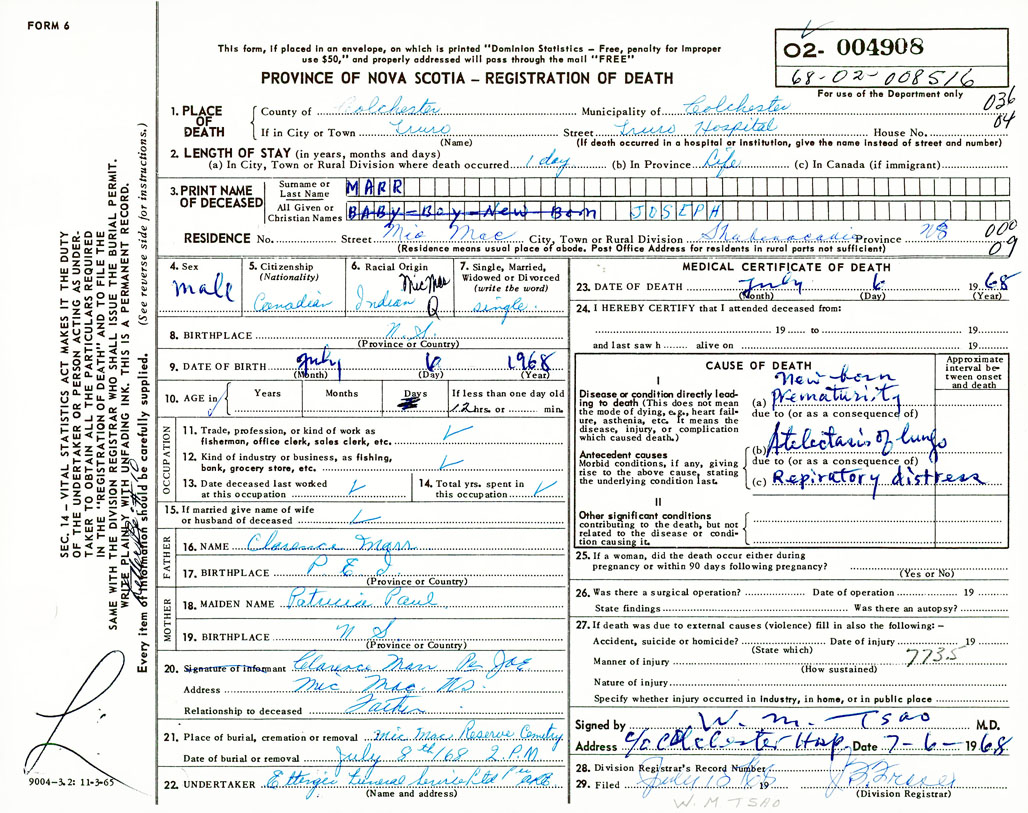 FORM 6
This form, if placed in an envelope, on which is printed "Dominion Statistics – Free, penalty for improper
use $50," and properly addressed will pass through the mail "FREE"
PROVINCE OF NOVA SCOTIA – REGISTRATION OF DEATH
02- 004908
68-02-008516
For use of the Department only
036
04
1. PLACE OF DEATH
County of Colchester Municipality of Colchester
If in City or Town Truro Street Truro Hospital House No.
(Name) (If death occurred in a hospital or institution, give the name instead of street and number)
2. LENGTH OF STAY (in years, months and days)
(a) In City, Town or Rural Division where death occurred 1 day (b) In Province Life (c) In Canada (if immigrant)
3. PRINT NAME OF DECEASED
Surname or Last Name MARR
All Given or Christian Names BABY-Boy-New Born JOSEPH
RESIDENCE No. Street Mic Mac City, Town or Rural Division Shubenacadie Province NS
(Residence means usual place of abode. Post Office Address for residents in rural parts not sufficient)
000
09
4. Sex
male
5. Citizenship
(Nationality)
Canadian
6. Racial Origin
Mic Mac
Indian
Q
7. Single, Married,
Widowed or Divorced
(write the word)
single.
8. BIRTHPLACE N.S.
(Province or Country)
9. DATE OF BIRTH July 6 1968
(Month) (Day) (Year)
10. AGE in
Years
Months
Days
If less than one day old
12 hrs. or min.
OCCUPATION
11. Trade, profession, or kind of work as
fisherman, office clerk, sales clerk, etc.
12. Kind of industry or business, as fishing,
bank, grocery store, etc.
13. Date deceased last worked
at this occupation
14. Total yrs. spent in
this occupation
15. If married give name of wife
or husband of deceased
FATHER
16. NAME Clarence Marr
17. BIRTHPLACE P E I
(Province or Country)
MOTHER
18. MAIDEN NAME Patricia Paul
19. BIRTHPLACE N S.
(Province or Country)
20. Signature of informant Clarence Marr Per
Address Mic Mac. NS.
Relationship to deceased Father
21. Place of burial, cremation or removal Mic Mac Reserve Cemetry
Date of burial or removal July 8th/68 2 P.M
22. UNDERTAKER Ettinger Funeral Service Ltd Per
(Name and address)
MEDICAL CERTIFICATE OF DEATH
23. DATE OF DEATH July 6 1968
(Month) (Day) (Year)
24. I HEREBY CERTIFY that I attended deceased from:
19 to 19
and last saw h alive on 19
CAUSE OF DEATH
Approximate
interval be-
tween onset
and death
I
Disease or condition directly lead-
ing to death (This does not mean
the mode of dying, e.g., heart fail-
ure, asthenia, etc. It means the
disease, injury, or complication
which caused death.)
New born
(a) Prematurity
due to (or as a consequence of)
Antecedent causes
Morbid conditions, if any, giving
rise to the above cause, stating
the underlying condition last.
(b) Atelectasis of lungs
due to (or as a consequence of)
(c) Repiratory distress
II
Other significant conditions
contributing to the death, but not
related to the disease or condi-
tion causing it.
25. If a woman, did the death occur either during
pregnancy or within 90 days following pregnancy?
(Yes or No)
26. Was there a surgical operation? Date of operation 19
State findings Was there an autopsy?
27. If death was due to external causes (violence) fill in also the following: –
Accident, suicide or homicide? Date of injury 19
(State which)
Manner of injury 7735
(How sustained)
Nature of injury
Specify whether injury occurred in Industry, in home, or in public place
Signed by W. M. Tsao M.D.
Address c/o Colchester Hosp. Date 7-6-1968
28. Division Registrar's Record Number
29. Filed July 10 1968
(Division Registrar)
W. M TSAO
SEC. 14 – VITAL STATISTICS ACT MAKES IT THE DUTY
OF THE UNDERTAKER OR PERSON ACTING AS UNDER-
TAKER TO OBTAIN ALL THE PARTICULARS REQUIRED
IN THE "REGISTRATION OF DEATH" AND TO FILE THE
SAME WITH THE DIVISION REGISTRAR WHO SHALL ISSUE THE BURIAL PERMIT.
WRITE PLAINLY WITH UNFADING INK. THIS IS A PERMANENT RECORD.
Every item of information should be carefully supplied. (See reverse side for instructions.)
9004–3.2: 11-3-65